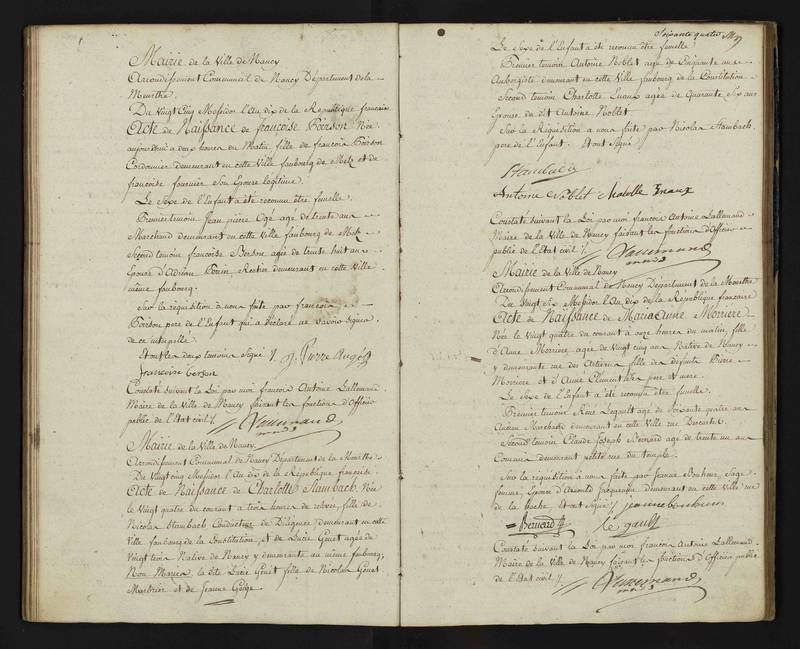 Mairie de la Ville de Nancy
Arrondissement Communal de Nancy Département de la
Meurthe.
Du Vingt Cinq Messidor l'An dix de la République française
Acte de Naissance de françoise Poirson Née
aujourd'hui a deux heures du Matin, fille de françois Poirson
Cordonnier demeurant en cette Ville faubourg de Metz et de
françoise fournier Son Epouse légitime.
Le Sexe de l'Enfant a été reconnu être femelle.
Premier temoin Jean pierre Ogé agé de trente ans
Marchand demeurant en cette Ville faubourg de Metz
Second temoin françoise Berson agée de trente huit ans
Epouse d'Adrian Rentier demeurant en cette Ville
même faubourg.
Sur la réquisition à nous faite par françois
Poirson pere de l'Enfant qui a déclaré ne savoir signer
de ce interpellé
Et ont les deux temoins Signé J. Pierre
françoise berson
Constaté suivant la Loi par moi françois Antoine Lallemand
Maire de la Ville de Nancy faisant les fonctions d'Officier
public de l'Etat civil /.
Lallemand
Mairie de la Ville de Nancy.
Arrondissement Communal de Nancy Département de la Meurthe.
Du Vingt cinq Messidor l'An dix de la République française
Acte de Naissance de Charlotte Stambach. Née
le Vingt quatre du courant a trois heures de relevée, fille de
Nicolas Stambach Conducteur de Diligence demeurant en cette
Ville faubourg de la Constitution, et de Lucie Genet agée de
Vingt trois Native de Nancy y demeurante au même faubourg;
Non Mariés, la dite Lucie Genet fille de Nicolas Genet
et de Jeanne George.
Soixante quatre
Le Sexe de l'Enfant a été reconnu être femelle
Premier temoin Antoine Noblet agé de Cinquante un
Aubergiste demeurant en cette Ville faubourg de la Constitution
Second temoin Charlotte Enaux agée de Quarante Six ans
Epouse du dit Antoine Noblet.
Sur la Réquisition a nous faite par Nicolas Stambach
pere de l'Enfant. Et ont Signé
Stambach
Antoine Noblet Enaux
Constaté suivant la Loi par moi françois Antoine Lallemand
Maire de la Ville de Nancy faisant les fonctions d'Officier
public de l'Etat civil /.
Lallemand
Mairie de la Ville de Nancy
Arrondissement Communal de Nancy Département de la Meurthe
Du Vingt Six Messidor l'An dix de la République française
Acte de Naissance de Marie Anne Morriere
Née le Vingt quatre du courant à onze heures du matin, fille
d'Anne Morriere, agée de Vingt cinq ans Native de Nancy
y demeurante rue des Artisans fille de défunts Pierre
Morriere et d'Anne Clement ses pere et mere.
Le Sexe de l'Enfant a été reconnu être femelle.
Premier temoin René Legault agé de Soixante quatre ans
Ancien Marchand demeurant en cette Ville rue Descartes.
Second temoin Claude Joseph Bernard agé de trente un ans
Commis demeurant même rue du temple.
Sur la réquisition à nous faite par Jeanne Bonheur Sage
femme, Epouse d'Arnould Jacquemin demeurant en cette Ville rue
de la hache, Et ont signé / jeannebonheur
Bernard Le gault
Constaté suivant la Loi par moi françois Antoine Lallemand
Maire de la Ville de Nancy faisant les fonctions d'Officier public
de l'Etat civil /.
Lallemand